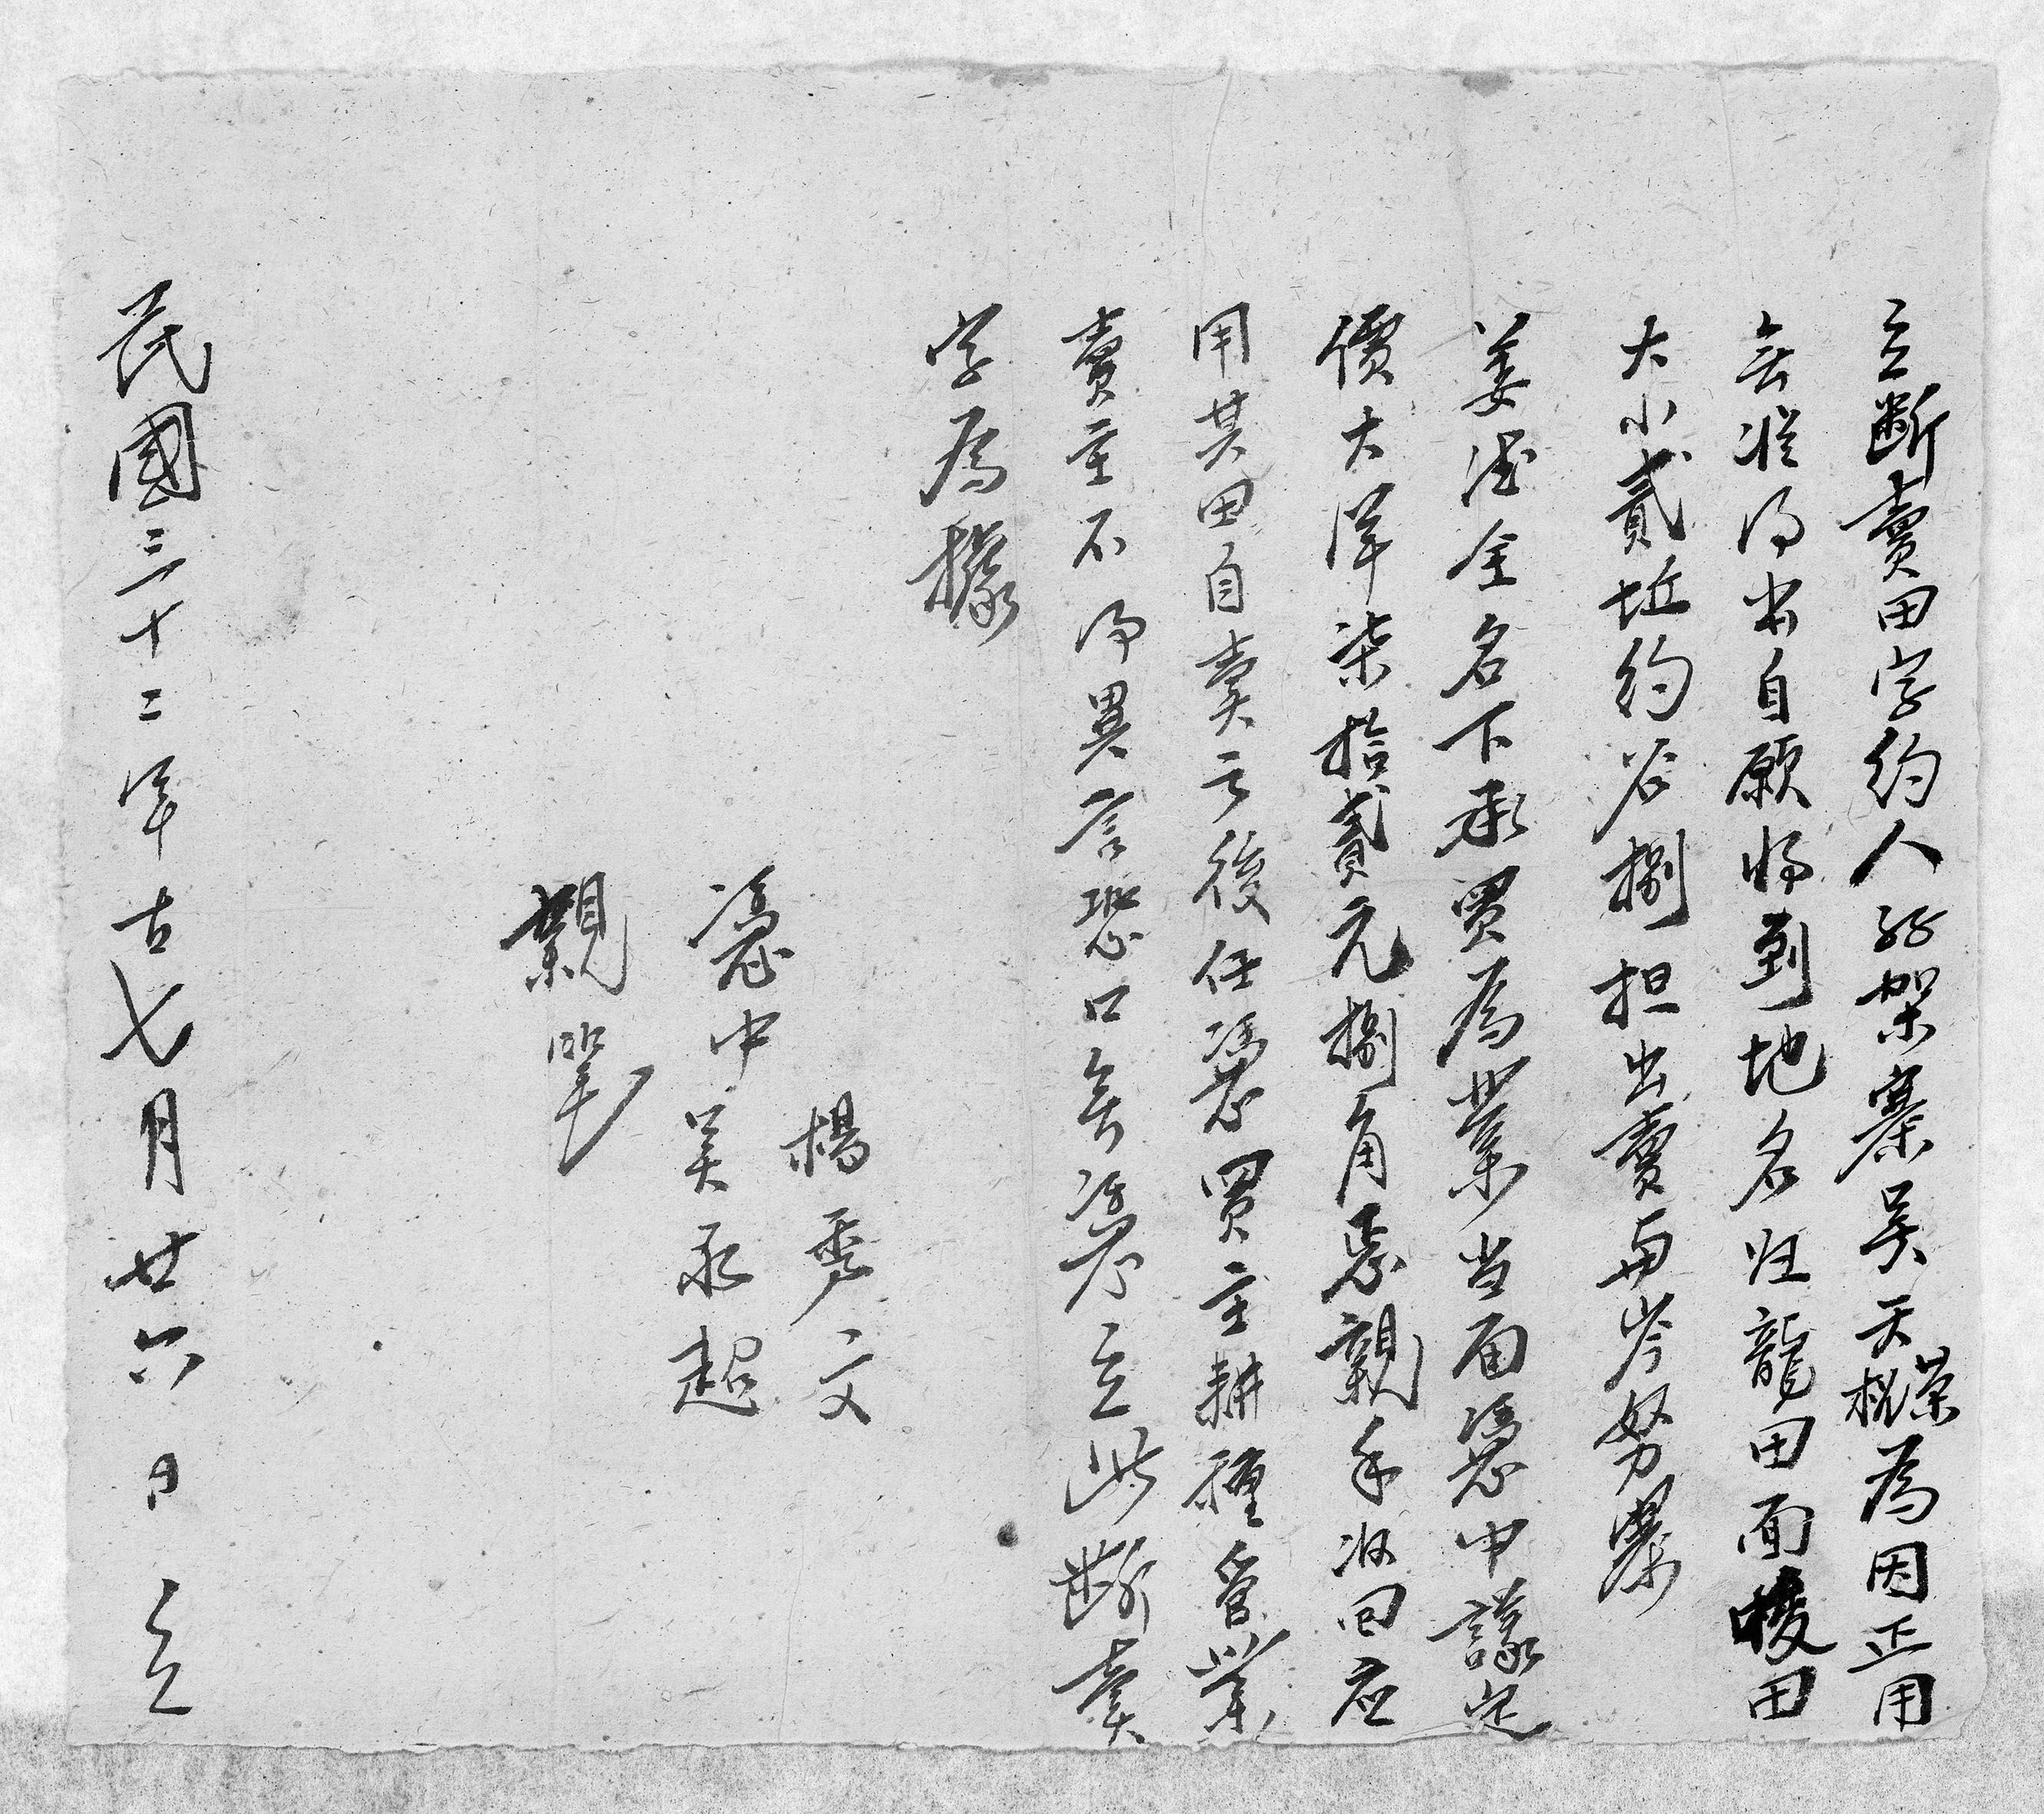 立斷賣田字約人 架寨吴天榮桃為因正用
無從得出自願将到地名归龍田面稜田
大小貳坵約谷捌担出賣与岑努寨
姜活金名下承買為業当面憑中議定
價大洋柒拾貳元捌角 親手收回应
用其田自卖之後任憑買主耕種管業
賣主不得異言恐口無憑立此断卖
字為據
楊秀文
憑中 吴永超
親筆
民國三十二年古七月廿六日 立